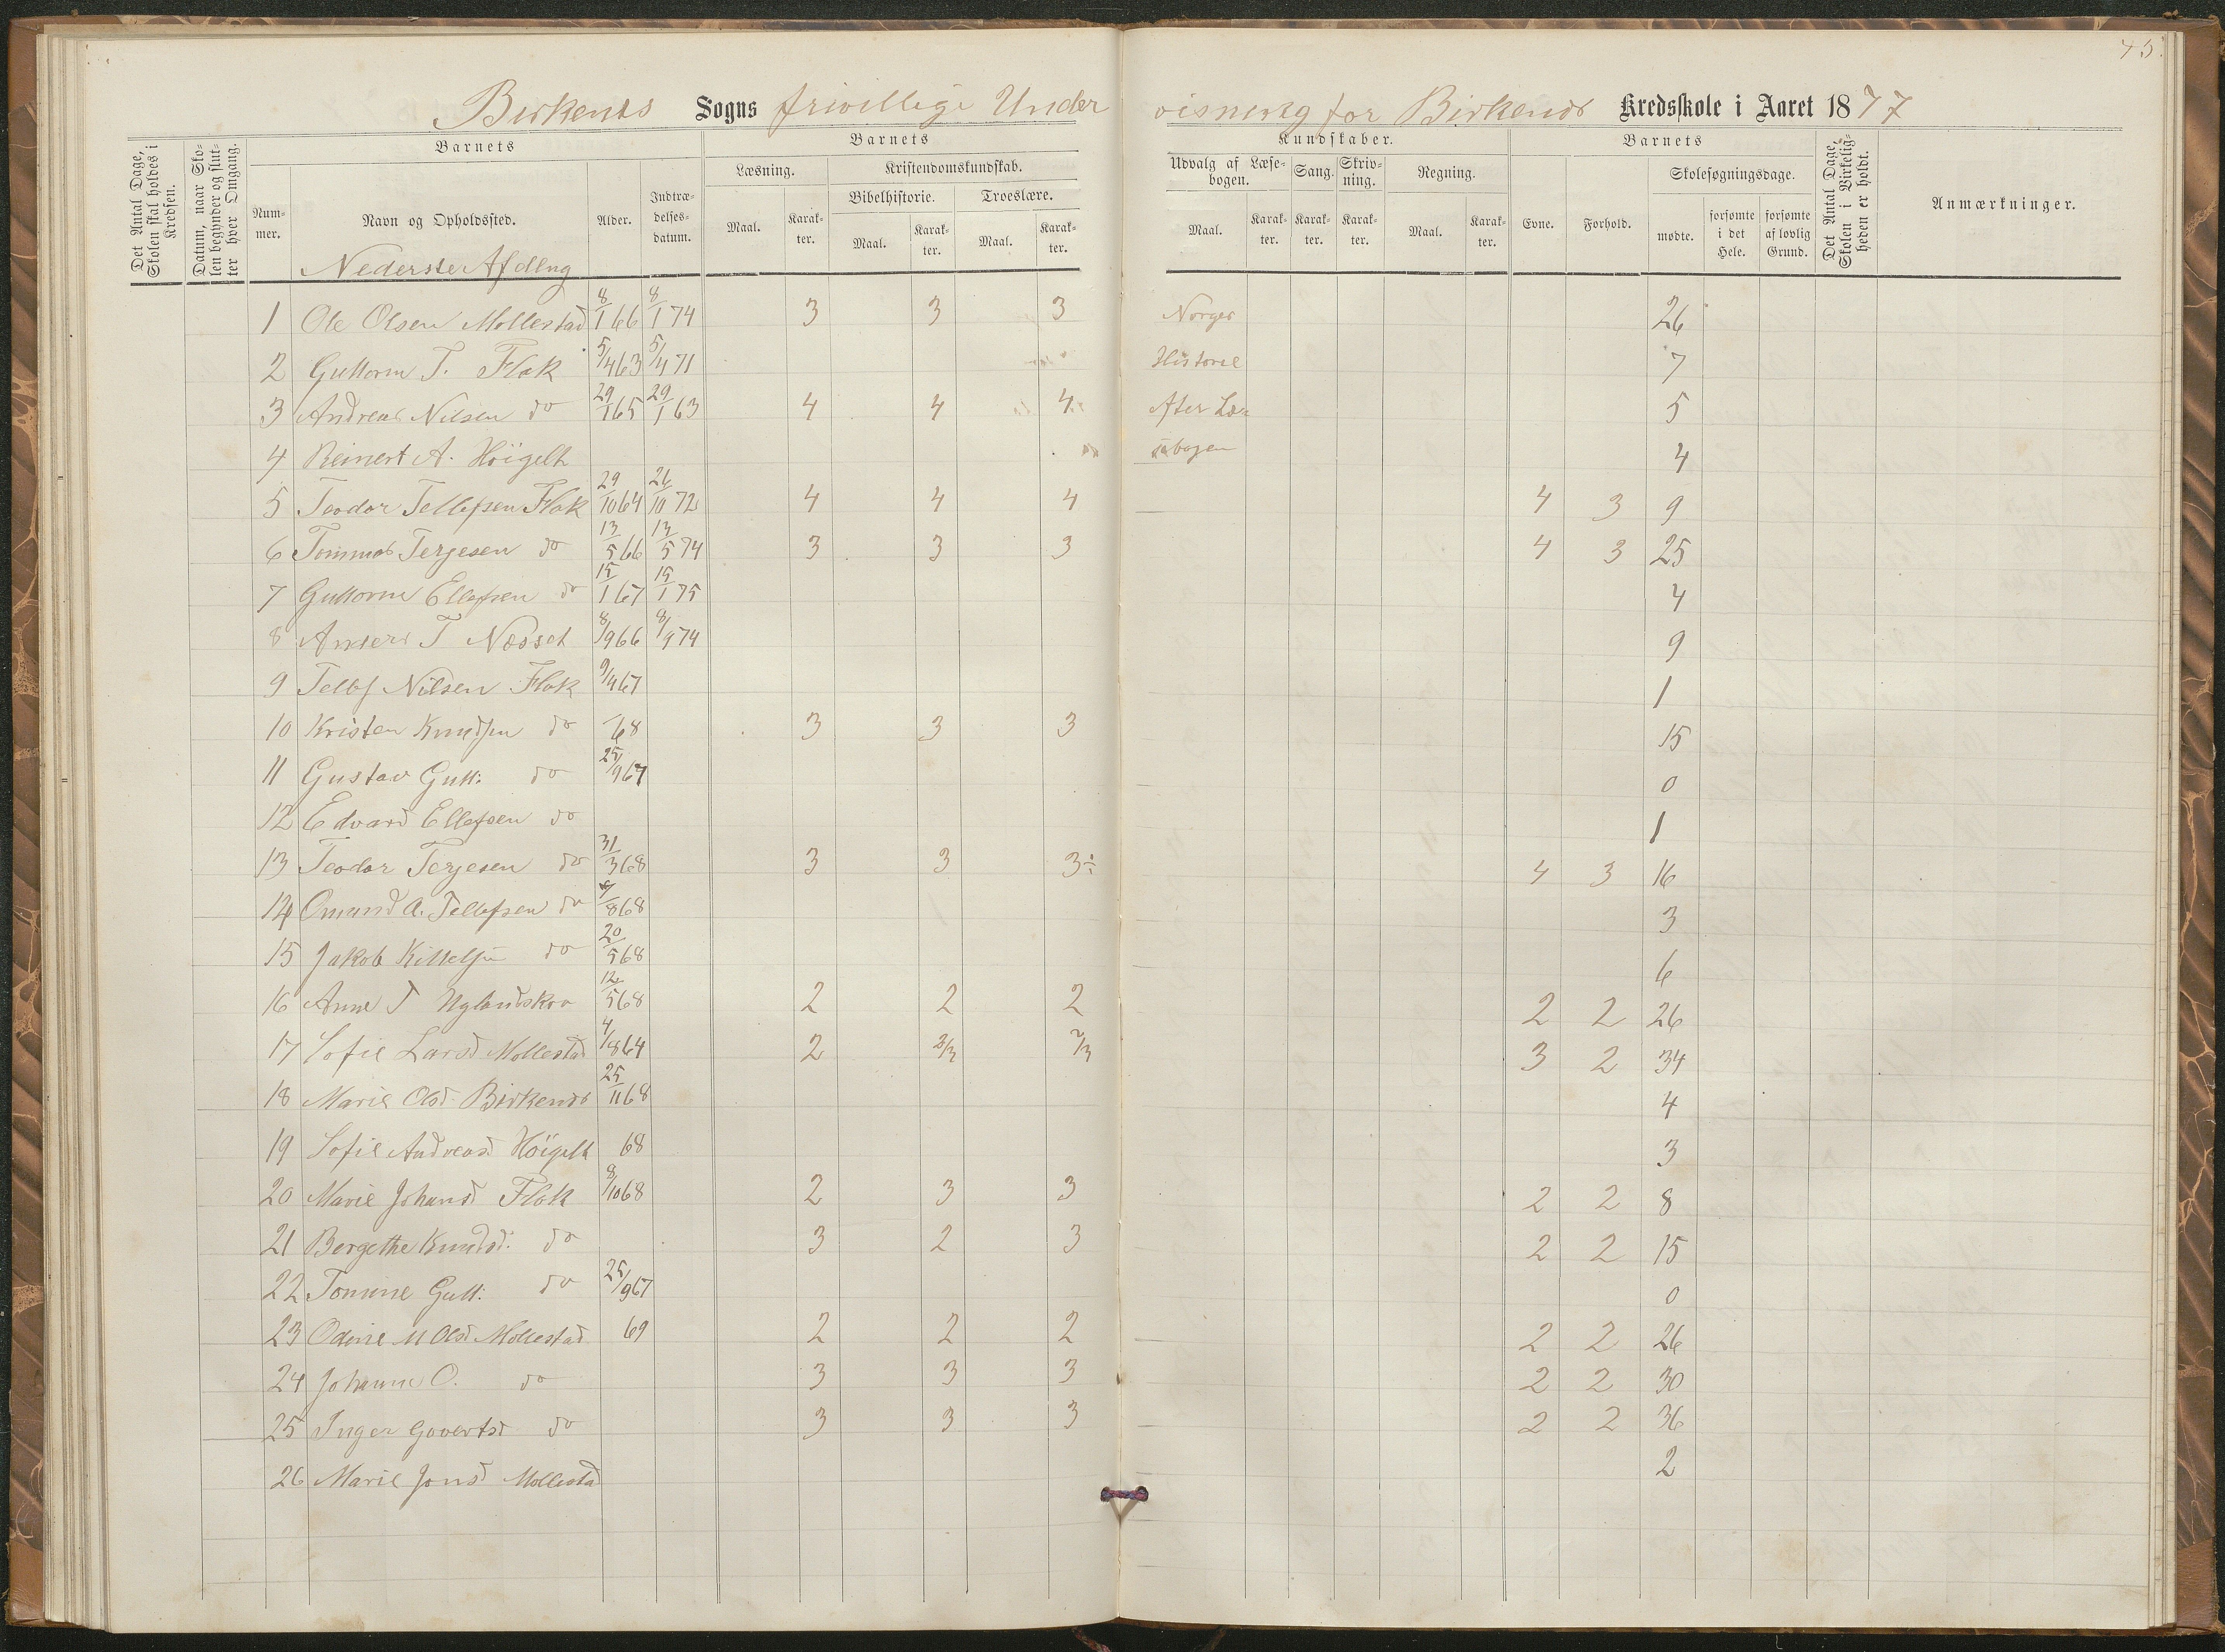 45.
Birkenes Sogns frivellige Under visnerg for Birkenes Kredsskole i Aaret 1877
Det Antal Dage, Skolen skal holdes i Kredsen.
Datum, naar Skolen begynder og slutter hver Omgang.
Barnets
Nummer.
Navn og Opholdssted.
Alder.
Indtrædelsesdatum.
Barnets
Læsning.
Maal.
Karakter.
Kristendomskundskab.
Bibelhistorie.
Maal.
Karakter.
Troeslære.
Maal.
Karakter.
Kundskaber.
Udvalg af Læsebogen.
Maal.
Karakter.
Sang.
Karakter.
Skrivning.
Karakter.
Regning.
Maal.
Karakter.
Barnets
Evne.
Forhold.
Skolesøgningsdage.
mødte.
forsømte i det Hele.
forsømte af lovlig Grund.
Det Antal Dage, Skolen i Virkeligheden er holdt.
Anmærkninger.
Nederster Afdlng
1 Ole Olsen Mollestad 8/1 66 8/1 74 3 3 3 Norges 26
2 Guttorm T. Flak 5/4 63 5/4 71 Historie 7
3 Andreas Nilsen do 29/1 65 29/1 63 4 4 4 After Læ= 5
4 Reinert A. Höigelt sebogen 4
5 Teodor Tellefsen Flak 29/10 64 26/10 72 4 4 4 4 3 9
6 Tommas Terjesen do 13/5 66 13/5 74 3 3 3 4 3 25
7 Guttorm Ellefsen do 15/1 67 15/1 75 4
8 Anders T Næsset 8/9 66 8/9 74 9
9 Tellef Nilsen Flak 9/4 67 1
10 Kristen Knudsen do 68 3 3 3 15
11 Gustav Gutt: do 25/9 67 0
12 Edvard Ellefsen do 1
13 Teodor Terjesen do 31/3 68 3 3 3÷ 4 3 16
14 Omund A. Tellefsen do /8 68 3
15 Jakob Kittelsen do 20/5 68 6
16 Anne T Uglandskra 12/5 68 2 2 2 2 2 26
17 Sofie Larsd Mollestad 4/8 64 2 2/3 2/3 3 2 34
18 Marie Olsd. Birkenes 25/11 68 4
19 Sofie Andreasd Höigelt 68 3
20 Marie Johansd Flak 8/10 68 2 3 3 2 2 8
21 Bergethe Knudsd. do 3 2 3 2 2 15
22 Tomine Gutt: do 25/9 67 0
23 Odine M Olsd Mollestad 69 2 2 2 2 2 26
24 Johanne O. do 3 3 3 2 2 30
25 Inger Govertsd do 3 3 3 2 2 36
26 Marie Jonsd Mollestad 2